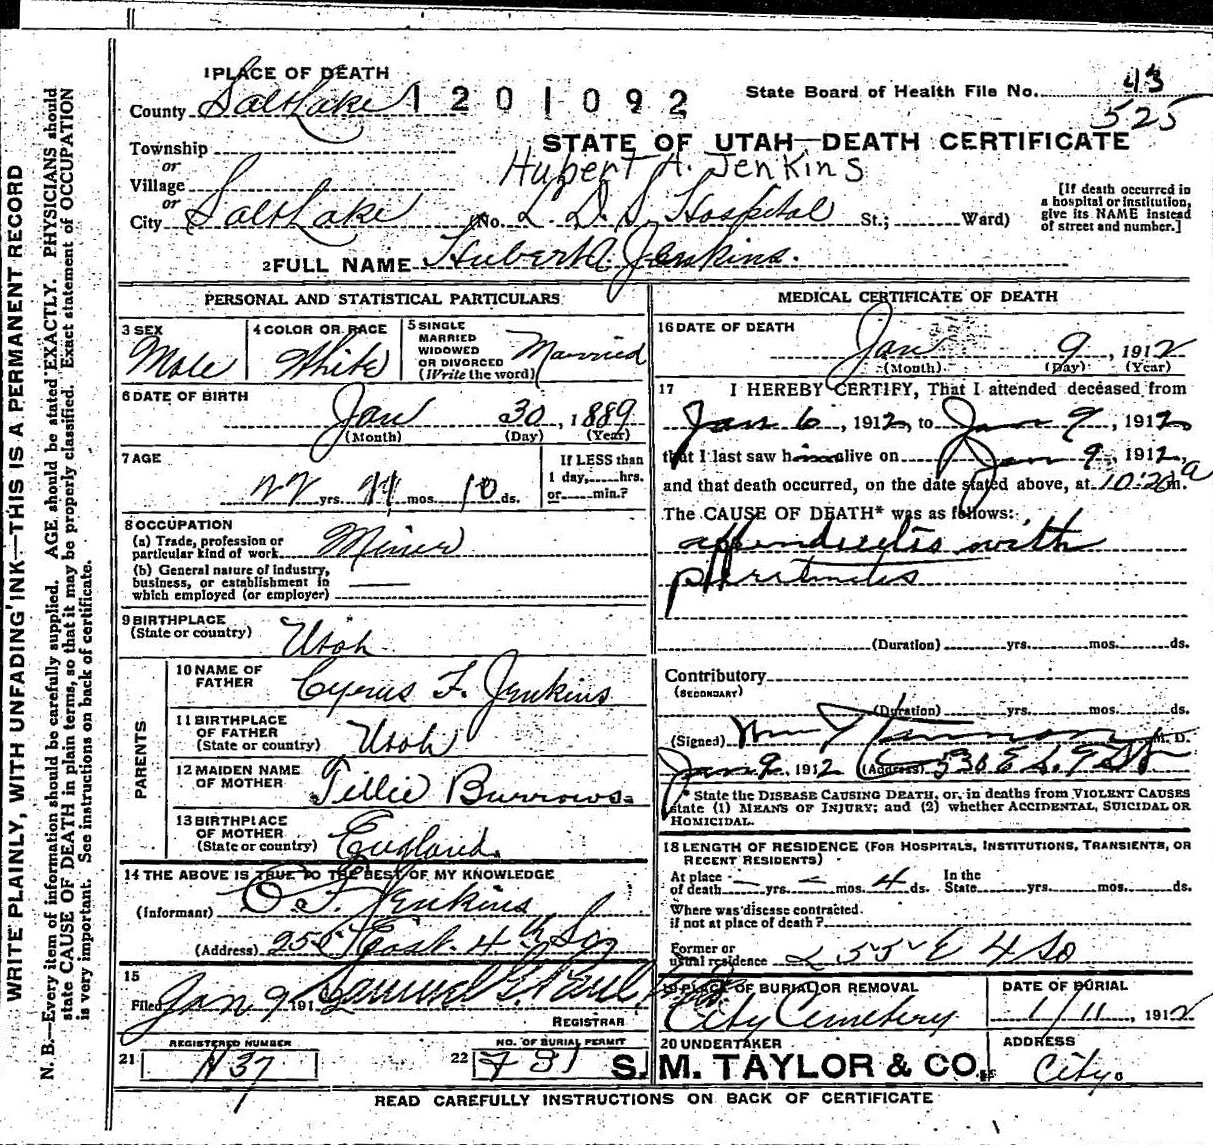 1 PLACE OF DEATH
County Salt Lake 1201092 State Board of Health File No. 43
525
STATE OF UTAH—DEATH CERTIFICATE
Township
or
Hubert A. Jenkins
Village
or
City Salt Lake (No. L. D. S. Hospital St.; Ward)
[If death occurred in
a hospital or institution,
give its NAME instead
of street and number.]
2 FULL NAME Hubert A. Jenkins.
PERSONAL AND STATISTICAL PARTICULARS
3 SEX
Male
4 COLOR OR RACE
White
5 SINGLE
MARRIED
WIDOWED
OR DIVORCED
(Write the word)
Married
6 DATE OF BIRTH
Jan 30, 1889
(Month) (Day) (Year)
7 AGE
22 yrs. 11 mos. 10 ds.
If LESS than
1 day, hrs.
or min.?
8 OCCUPATION
(a) Trade, profession or
particular kind of work Miner
(b) General nature of industry,
business, or establishment in
which employed (or employer)
9 BIRTHPLACE
(State or country) Utah
PARENTS
10 NAME OF
FATHER Cyrus F. Jenkins
11 BIRTHPLACE
OF FATHER
(State or country) Utah
12 MAIDEN NAME
OF MOTHER Tillie Burrows
13 BIRTHPLACE
OF MOTHER
(State or country) England.
14 THE ABOVE IS TRUE TO THE BEST OF MY KNOWLEDGE
(Informant) C. F. Jenkins
(Address) 255 East 4th So
15
Filed Jan 9 191 Samuel G. Paul,
REGISTRAR
REGISTERED NUMBER
21 H 37
NO. OF BURIAL PERMIT
22 731
MEDICAL CERTIFICATE OF DEATH
16 DATE OF DEATH
Jan 9, 1912
(Month) (Day) (Year)
17 I HEREBY CERTIFY, That I attended deceased from
Jan 6, 1912, to Jan 9, 1912,
that I last saw him alive on Jan 9, 1912,
and that death occurred, on the date stated above, at 10:20 a m.
The CAUSE OF DEATH* was as follows:
appendicitis with
peritonitis
(Duration) yrs. mos. ds.
Contributory
(SECONDARY)
(Duration) yrs. mos. ds.
(Signed) M. D.
Jan 9, 1912 (Address) 530 E So
* State the DISEASE CAUSING DEATH, or, in deaths from VIOLENT CAUSES
state (1) MEANS OF INJURY; and (2) whether ACCIDENTAL, SUICIDAL OR
HOMICIDAL.
18 LENGTH OF RESIDENCE (FOR HOSPITALS, INSTITUTIONS, TRANSIENTS, OR
RECENT RESIDENTS)
At place
of death yrs. mos. 4 ds. In the
State yrs. mos. ds.
Where was disease contracted
if not at place of death?
Former or
usual residence 255 E 4 So
19 PLACE OF BURIAL OR REMOVAL
City Cemetery
DATE OF BURIAL
1/11, 1912
20 UNDERTAKER
S. M. TAYLOR & CO.
ADDRESS
City.
READ CAREFULLY INSTRUCTIONS ON BACK OF CERTIFICATE
WRITE PLAINLY, WITH UNFADING INK—THIS IS A PERMANENT RECORD
N. B.—Every item of information should be carefully supplied. AGE should be stated EXACTLY. PHYSICIANS should
state CAUSE OF DEATH in plain terms, so that it may be properly classified. Exact statement of OCCUPATION
is very important. See instructions on back of certificate.